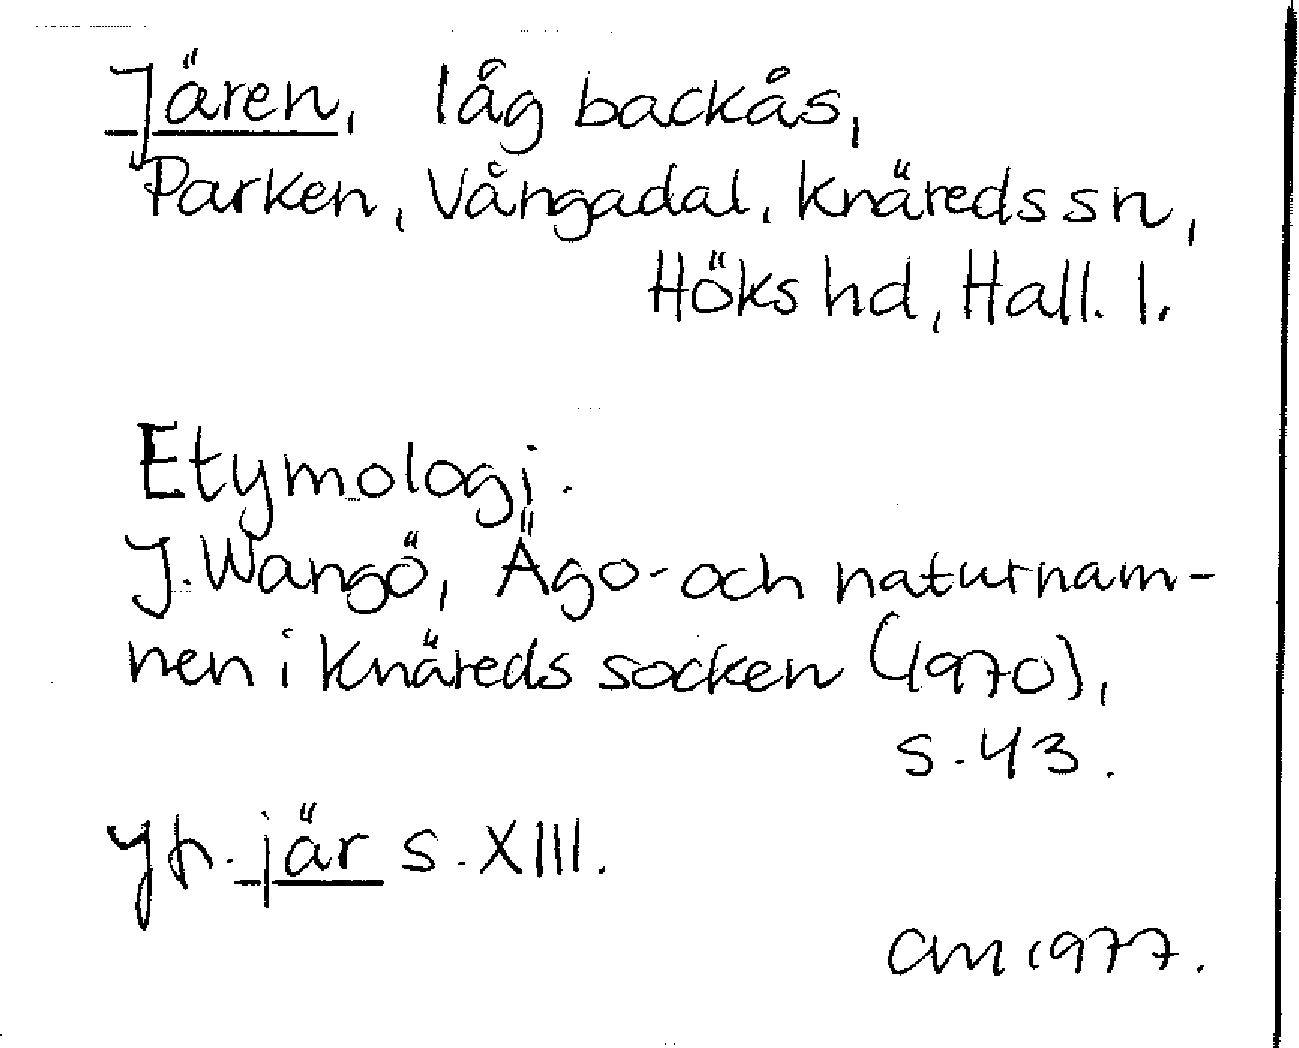 Jären, låg backås,
Parken, Vångadal, Knäreds sn,
Höks hd, Hall. l.
Etymologi.
J. Wangö, Ägo- och naturnam-
nen i Knäreds socken (1970),
s. 43.
jär s. XIII.
CM 1977.